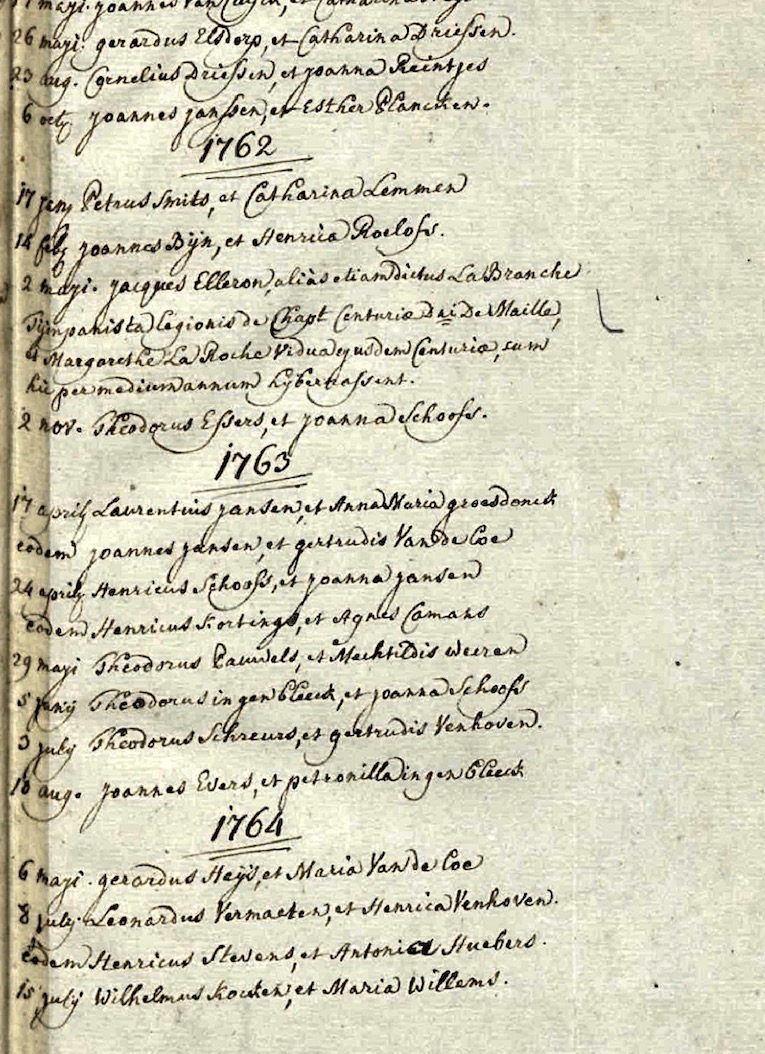 maji. joannes Van
26 maji. gerardus Elsdorp, et Catharina Driessen.
23 aug. Cornelius Driessen, et joanna Reintjes
6 octj. joannes janssen, et Esther Plancken.
1762
17 Petrus Smits, et Catharina Lemmen
14 febj joannes Bijn, et Henrica Roelofs.
2 maji. jacques Elleron, aliàs etiam dictus La Branche
Tijmpanista Legionis de Chapt Centuriæ Dni De Maille,
et Margarethe La Roche Vidua ejusdem Centuriæ, cum
hic per medium annum hijbernassent.
2 nov. Theodorus Essers, et joanna Schoofs.
1763
17 aprilj Laurentius jansen, et Anna Maria groesdonck
eodem joannes jansen, et gertrudis Van de Coe
24 aprilj Henricus Schoofs, et joanna jansen
eodem Henricus Kortings, et Agnes Camans
29 maji Theodorus Pauwels, et Mechtildis weeren
5 junij Theodorus in gen bleeck, et joanna Schoofs
3 julij Theodorus Schreurs, et gertrudis Venhoven.
aug. joannes Evers, et petronilla in gen bleeck
1764
6 maji. gerardus Heijs, et Maria Van de Coe
8 julij. Leonardus Vermaeten, et Henrica Venhoven.
eodem Henricus Stevens, et Antonia Huebers.
15 julij Wilhelmus Kocken, et Maria Willems.